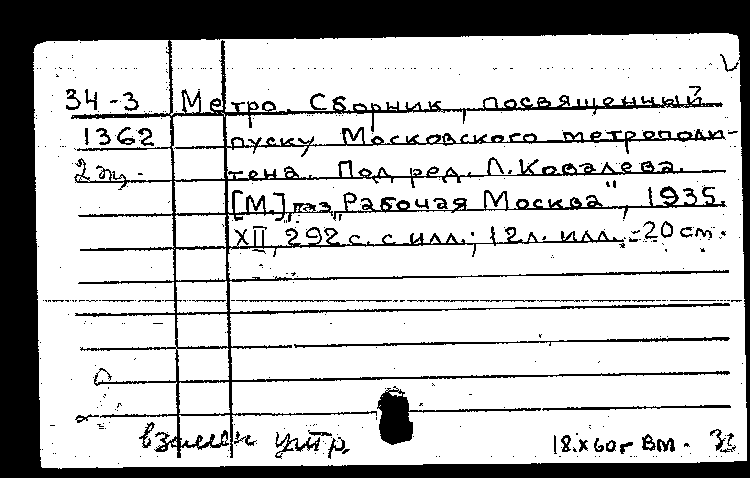 34-3 Метро. Сборник, посвященный
1362 пуску Московского метрополи-
2 эк. тена. Под ред. Л. Ковалева.
[М.], газ. „Рабочая Москва", 1935.
XII, 292 с. с илл.; 12 л. илл. - 20 см.
взамен утр.
18.X 60г ВМ.